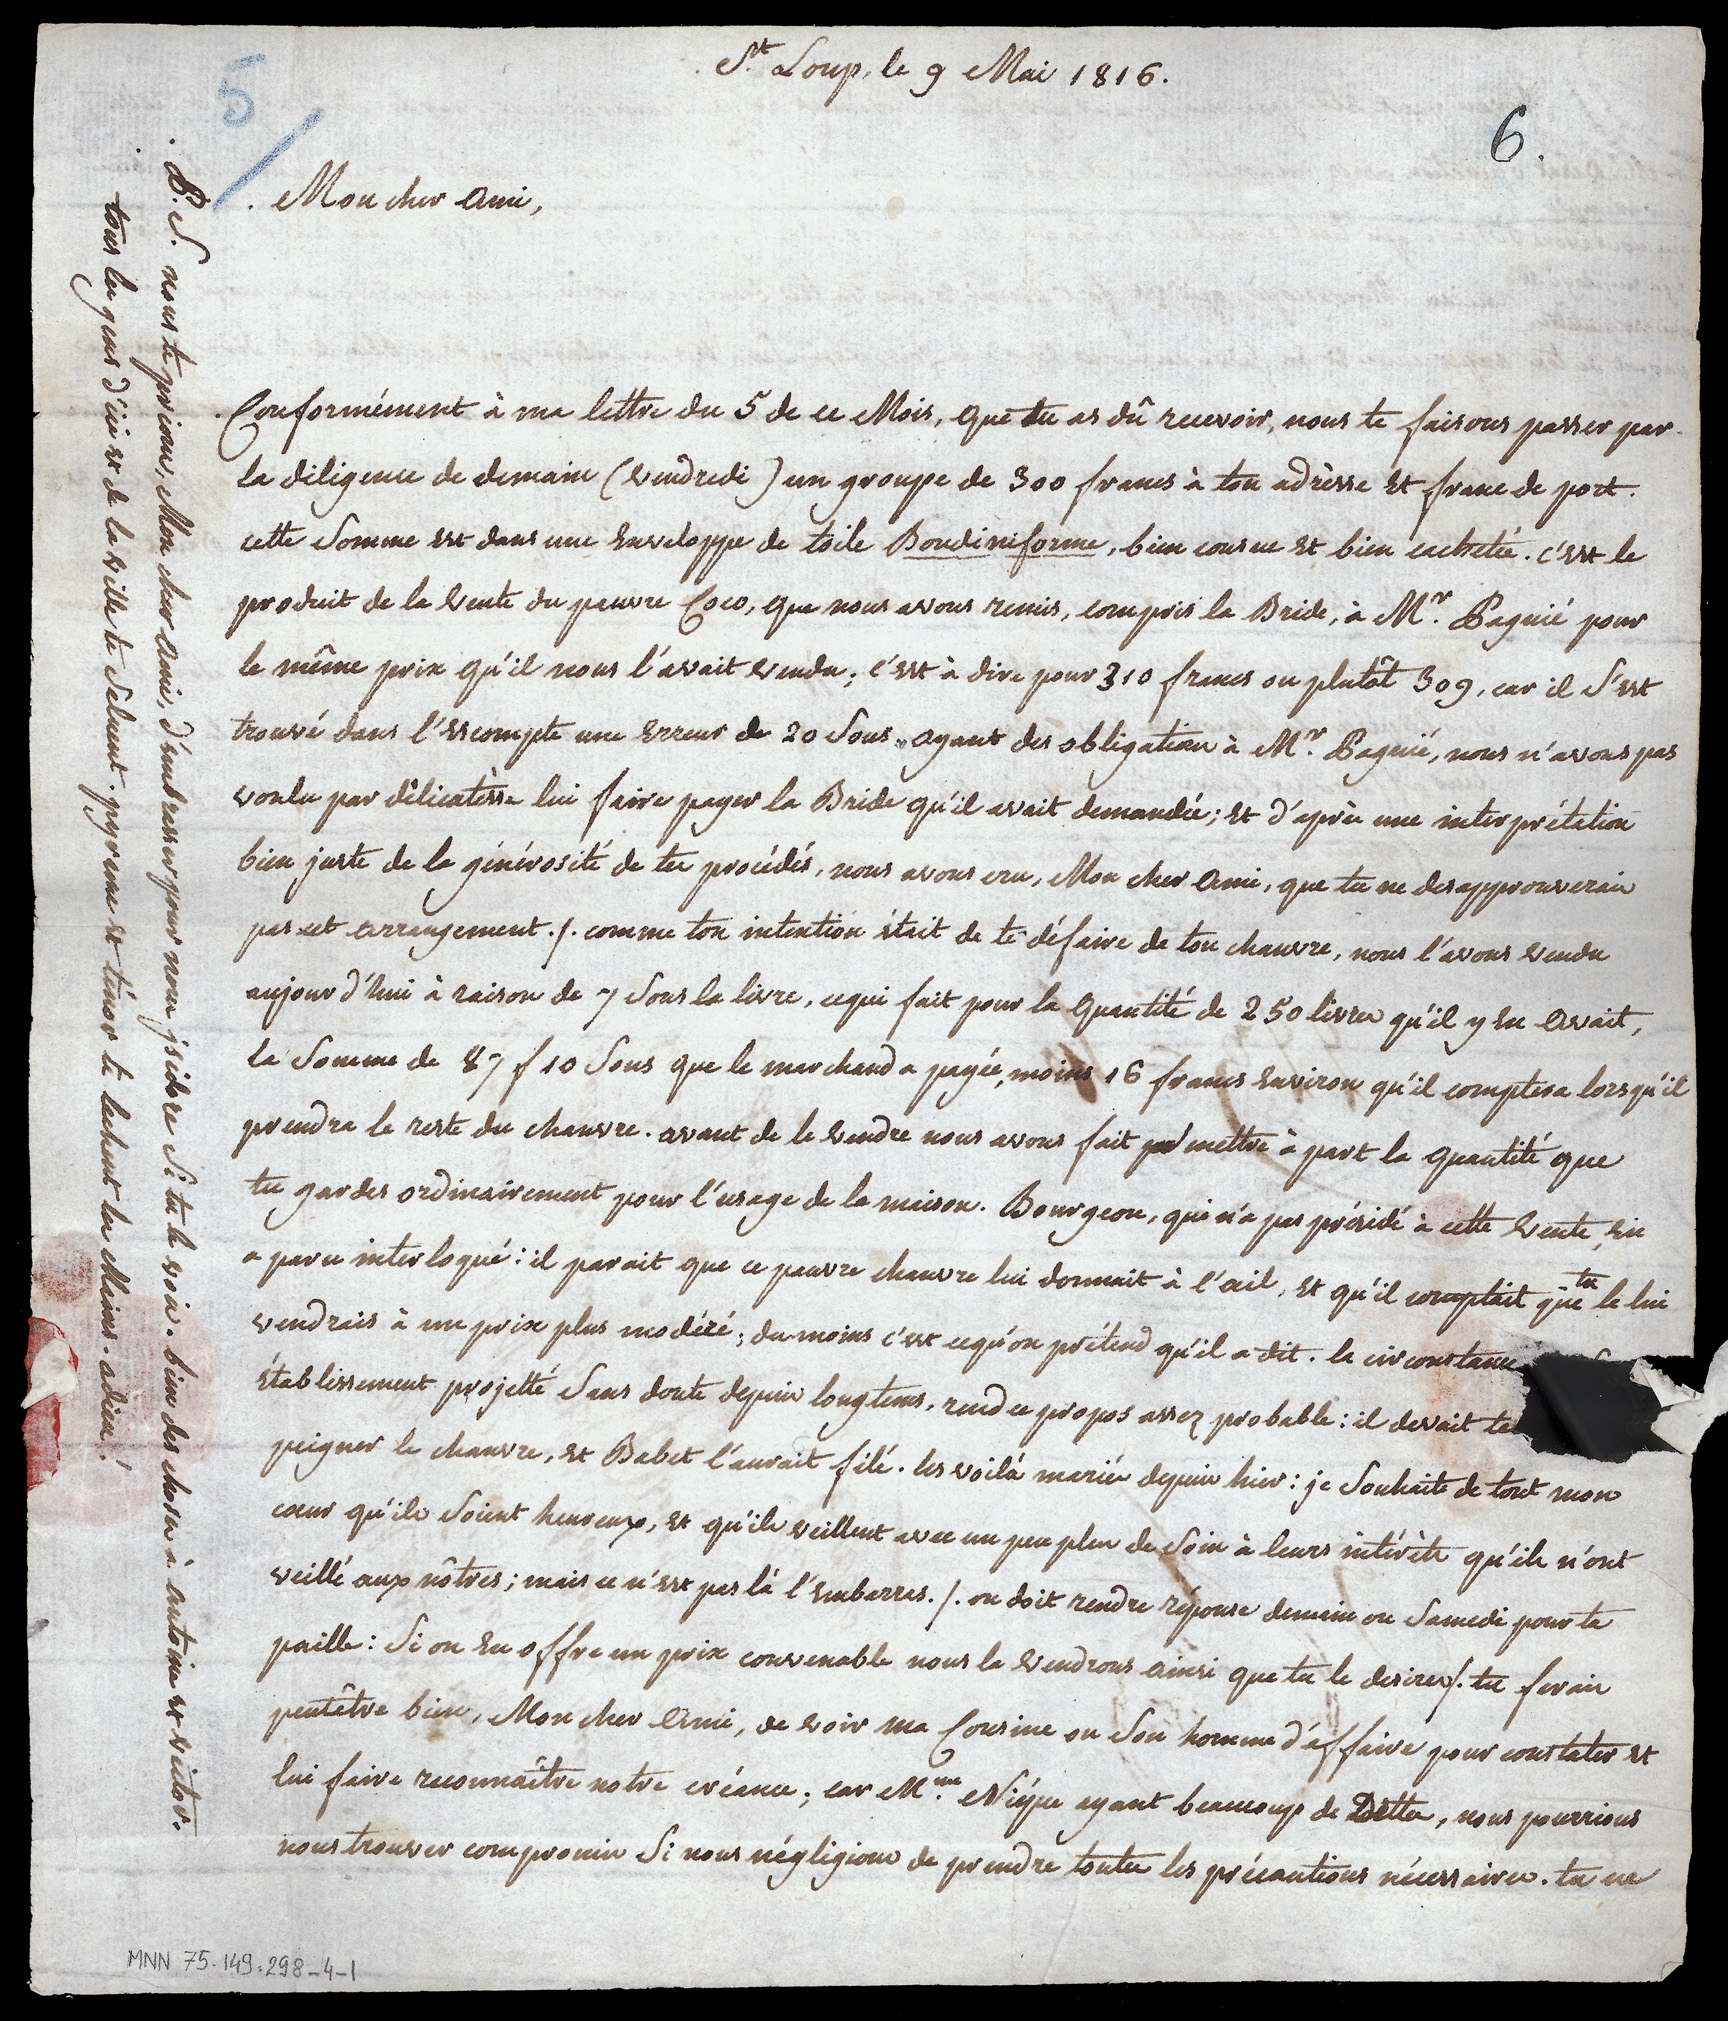 St. Loup, le 9 Mai 1816.
5
6.
Mon cher Ami,
Conformément à ma lettre du 5 de ce Mois, que tu as dû recevoir, nous te faisons passer par
la diligence de demain (Vendredi) un groupe de 300 francs à ton adrèsse et franc de port.
cette Somme est dans une Enveloppe de toile Boudiniforme, bien cousue et bien cachetée. c'est le
produit de la Vente du pauvre Coco, que nous avons remis, compris la Bride, à Mr. Bagnié pour
le même prix qu'il nous l'avait Vendu; c'est à dire pour 310 francs ou plutôt 309, car il S'est
trouvé dans l'Escompte une Erreur de 20 Sous. Ayant des obligations à Mr. Bagnié, nous n'avons pas
voulu par délicatèsse lui faire payer la Bride qu'il avait demandée; et d'après une interprétation
bien juste de la générosité de tes procédés, nous avons cru, Mon cher Ami, que tu ne desapprouverais
pas cet arrangement./. comme ton intention était de te défaire de ton chanvre, nous l'avons Vendu
aujourd'hui à raison de 7 Sous la livre, cequi fait pour la Quantité de 250 livres qu'il y En Avait,
la Somme de 87 f 10 Sous que le marchand a payée, moins 16 francs Environ qu'il comptera lorsqu'il
prendra le reste du chanvre. avant de le Vendre nous avons fait mettre à part la Quantité que
tu gardes ordinairement pour l'usage de la maison. Bourgeon, qui n'a pas présidé à cette Vente, En
a paru interloqué: il parait que ce pauvre chanvre lui donnait à l'œil, et qu'il comptait que tu le lui
vendrais à un prix plus modéré; du moins c'est cequ'on prétend qu'il a dit. la circonstance
Établissement projetté Sans doute depuis longtems, rend ce propos assez probable: il devait te
peigner le chanvre, et Babet l'aurait filé. les voilà mariés depuis hier: je Souhaite de tout mon
cœur qu'ils Soient heureux, et qu'ils veillent avec un peu plus de Soin à leurs intérêts qu'ils n'ont
veillé aux nôtres; mais ce n'est pas là l'Embarras./. on doit rendre réponse demain ou Samedi pour ta
paille: Si on En offre un prix convenable nous la Vendrons Ainsi que tu le desires/. tu ferais
peutêtre bien, Mon cher Ami, de voir ma Cousine ou Son homme d'affaire pour constater et
lui faire reconnaître notre créance; car Mme. Nièpce ayant beaucoup de Dettes, nous pourrions
nous trouver compromis Si nous négligions de prendre toutes les précautions nécessaires. tu ne
P.S. nous te prions, Mon cher Ami, d'embrasser pour nous jsidore Si tu le vois. bien des choses à Antoine et Victor.
tous les gens d'ici et de la Ville te Saluent. pyrame et ténor te lechent les Mains. adieu!
MNN 75.149.298-4-1